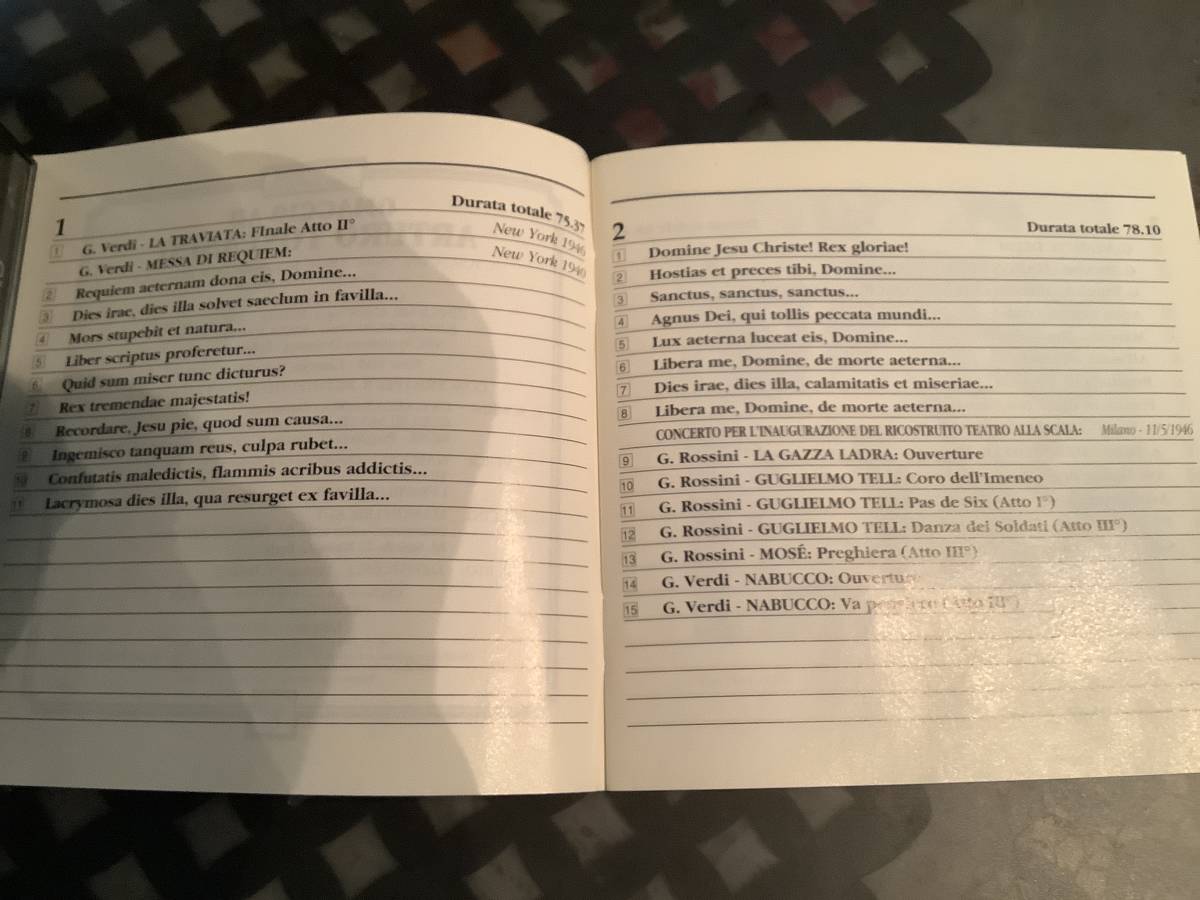 1 Durata totale 75.37
1 G. Verdi - LA TRAVIATA: Finale Atto II° New York 1946
G. Verdi - MESSA DI REQUIEM: New York 1940
2 Requiem aeternam dona eis, Domine...
3 Dies irae, dies illa solvet saeclum in favilla...
4 Mors stupebit et natura...
5 Liber scriptus proferetur...
6 Quid sum miser tunc dicturus?
7 Rex tremendae majestatis!
8 Recordare, Jesu pie, quod sum causa...
9 Ingemisco tanquam reus, culpa rubet...
10 Confutatis maledictis, flammis acribus addictis...
11 Lacrymosa dies illa, qua resurget ex favilla...
2 Durata totale 78.10
1 Domine Jesu Christe! Rex gloriae!
2 Hostias et preces tibi, Domine...
3 Sanctus, sanctus, sanctus...
4 Agnus Dei, qui tollis peccata mundi...
5 Lux aeterna luceat eis, Domine...
6 Libera me, Domine, de morte aeterna...
7 Dies irae, dies illa, calamitatis et miseriae...
8 Libera me, Domine, de morte aeterna...
CONCERTO PER L'INAUGURAZIONE DEL RICOSTRUITO TEATRO ALLA SCALA: Milano - 11/5/1946
9 G. Rossini - LA GAZZA LADRA: Ouverture
10 G. Rossini - GUGLIELMO TELL: Coro dell'Imeneo
11 G. Rossini - GUGLIELMO TELL: Pas de Six (Atto I°)
12 G. Rossini - GUGLIELMO TELL: Danza dei Soldati (Atto III°)
13 G. Rossini - MOSÉ: Preghiera (Atto III°)
14 G. Verdi - NABUCCO: Ouverture
15 G. Verdi - NABUCCO: Va pensiero (Atto III°)